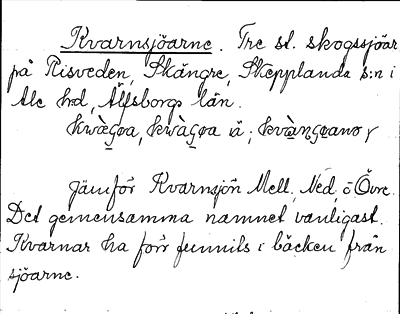 Kvarnsjöarne. Tre st. skogssjöar
på Risveden, Skångre, Skepplanda s:n i
Ale h:d, Älfsborgs län.
jämför Kvarnsjön Mell, Ned, ö Övre.
Det gemensamma namnet vanligast.
Kvarnar ha förr funnits i bäcken från
sjöarne.